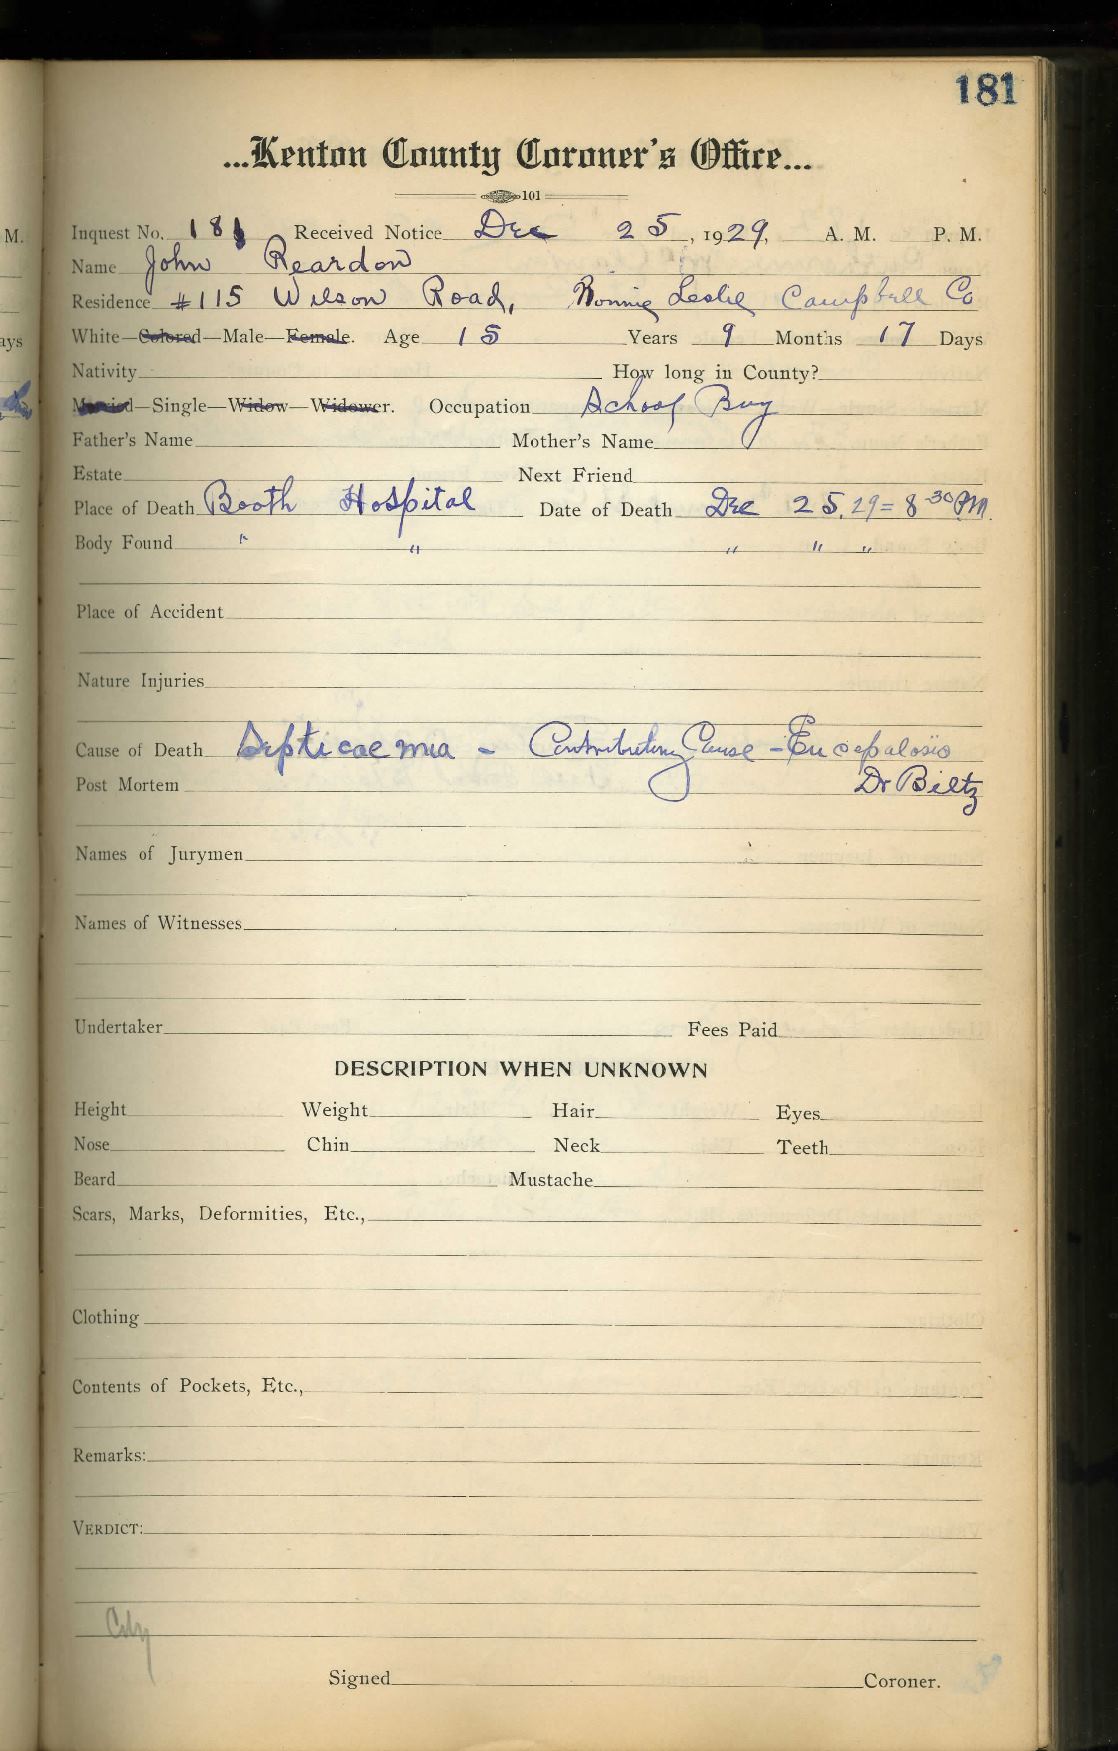 181
...Kenton County Coroner's Office...
101
Inquest No. 181 Received Notice Dec 25, 1929, A. M. P. M.
Name John Reardon
Residence #115 Wilson Road, Bonnie Leslie Campbell Co
White—Colored—Male—Female. Age 15 Years 9 Months 17 Days
Nativity How long in County?
Married—Single—Widow—Widower. Occupation School Boy
Father's Name Mother's Name
Estate Next Friend
Place of Death Booth Hospital Date of Death Dec 25, 29 = 8-30 PM.
Body Found " " " " "
Place of Accident
Nature Injuries
Cause of Death Septicaemia - Contributing Cause - Encepalosis
Post Mortem Dr Biltz
Names of Jurymen
Names of Witnesses
Undertaker Fees Paid
DESCRIPTION WHEN UNKNOWN
Height Weight Hair Eyes
Nose Chin Neck Teeth
Beard Mustache
Scars, Marks, Deformities, Etc.,
Clothing
Contents of Pockets, Etc.,
Remarks:
VERDICT:
Signed Coroner.
M.
ays